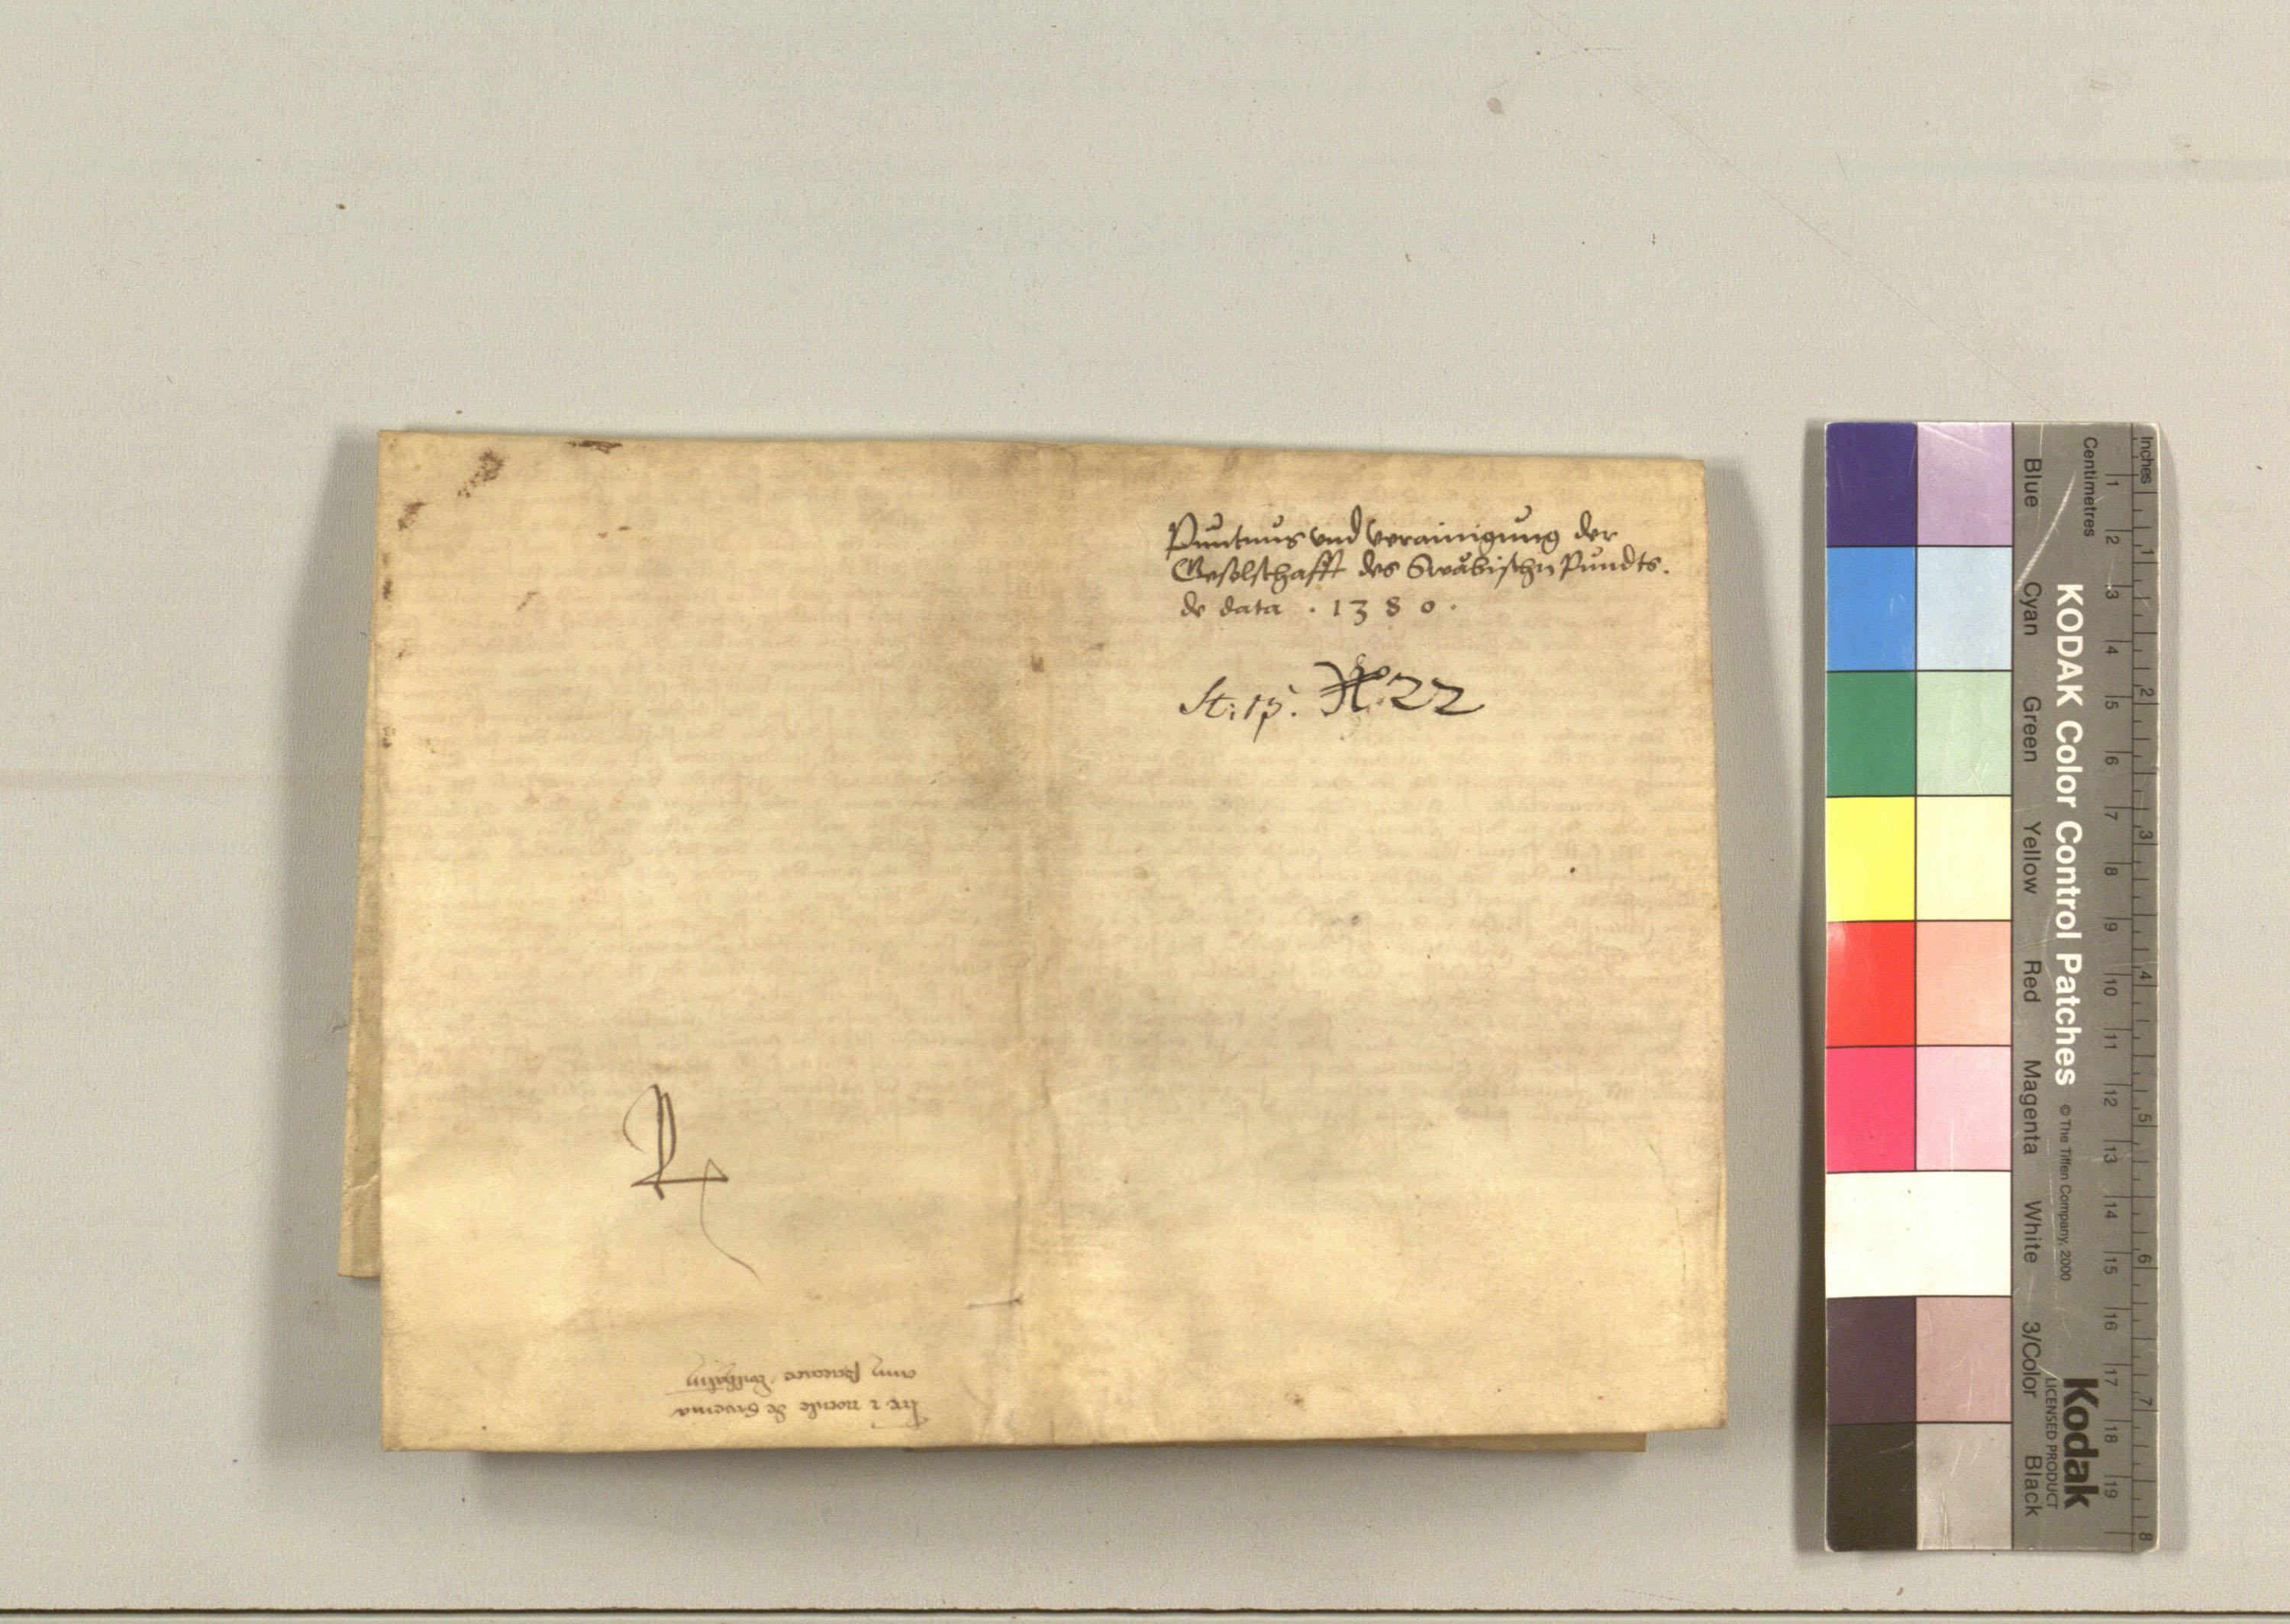 Puntnus vnd verainigung der
Geselschafft des Swäbischn Pundts.
de data . 1380 .
St: 15. N° 22
R
Inches
Centimetres
1 2 3 4 5 6 7 8
1 2 3 4 5 6 7 8 9 10 11 12 13 14 15 16 17 18 19
KODAK Color Control Patches © The Tiffen Company, 2000
Kodak
LICENSED PRODUCT
Blue Cyan Green Yellow Red Magenta White 3/Color Black